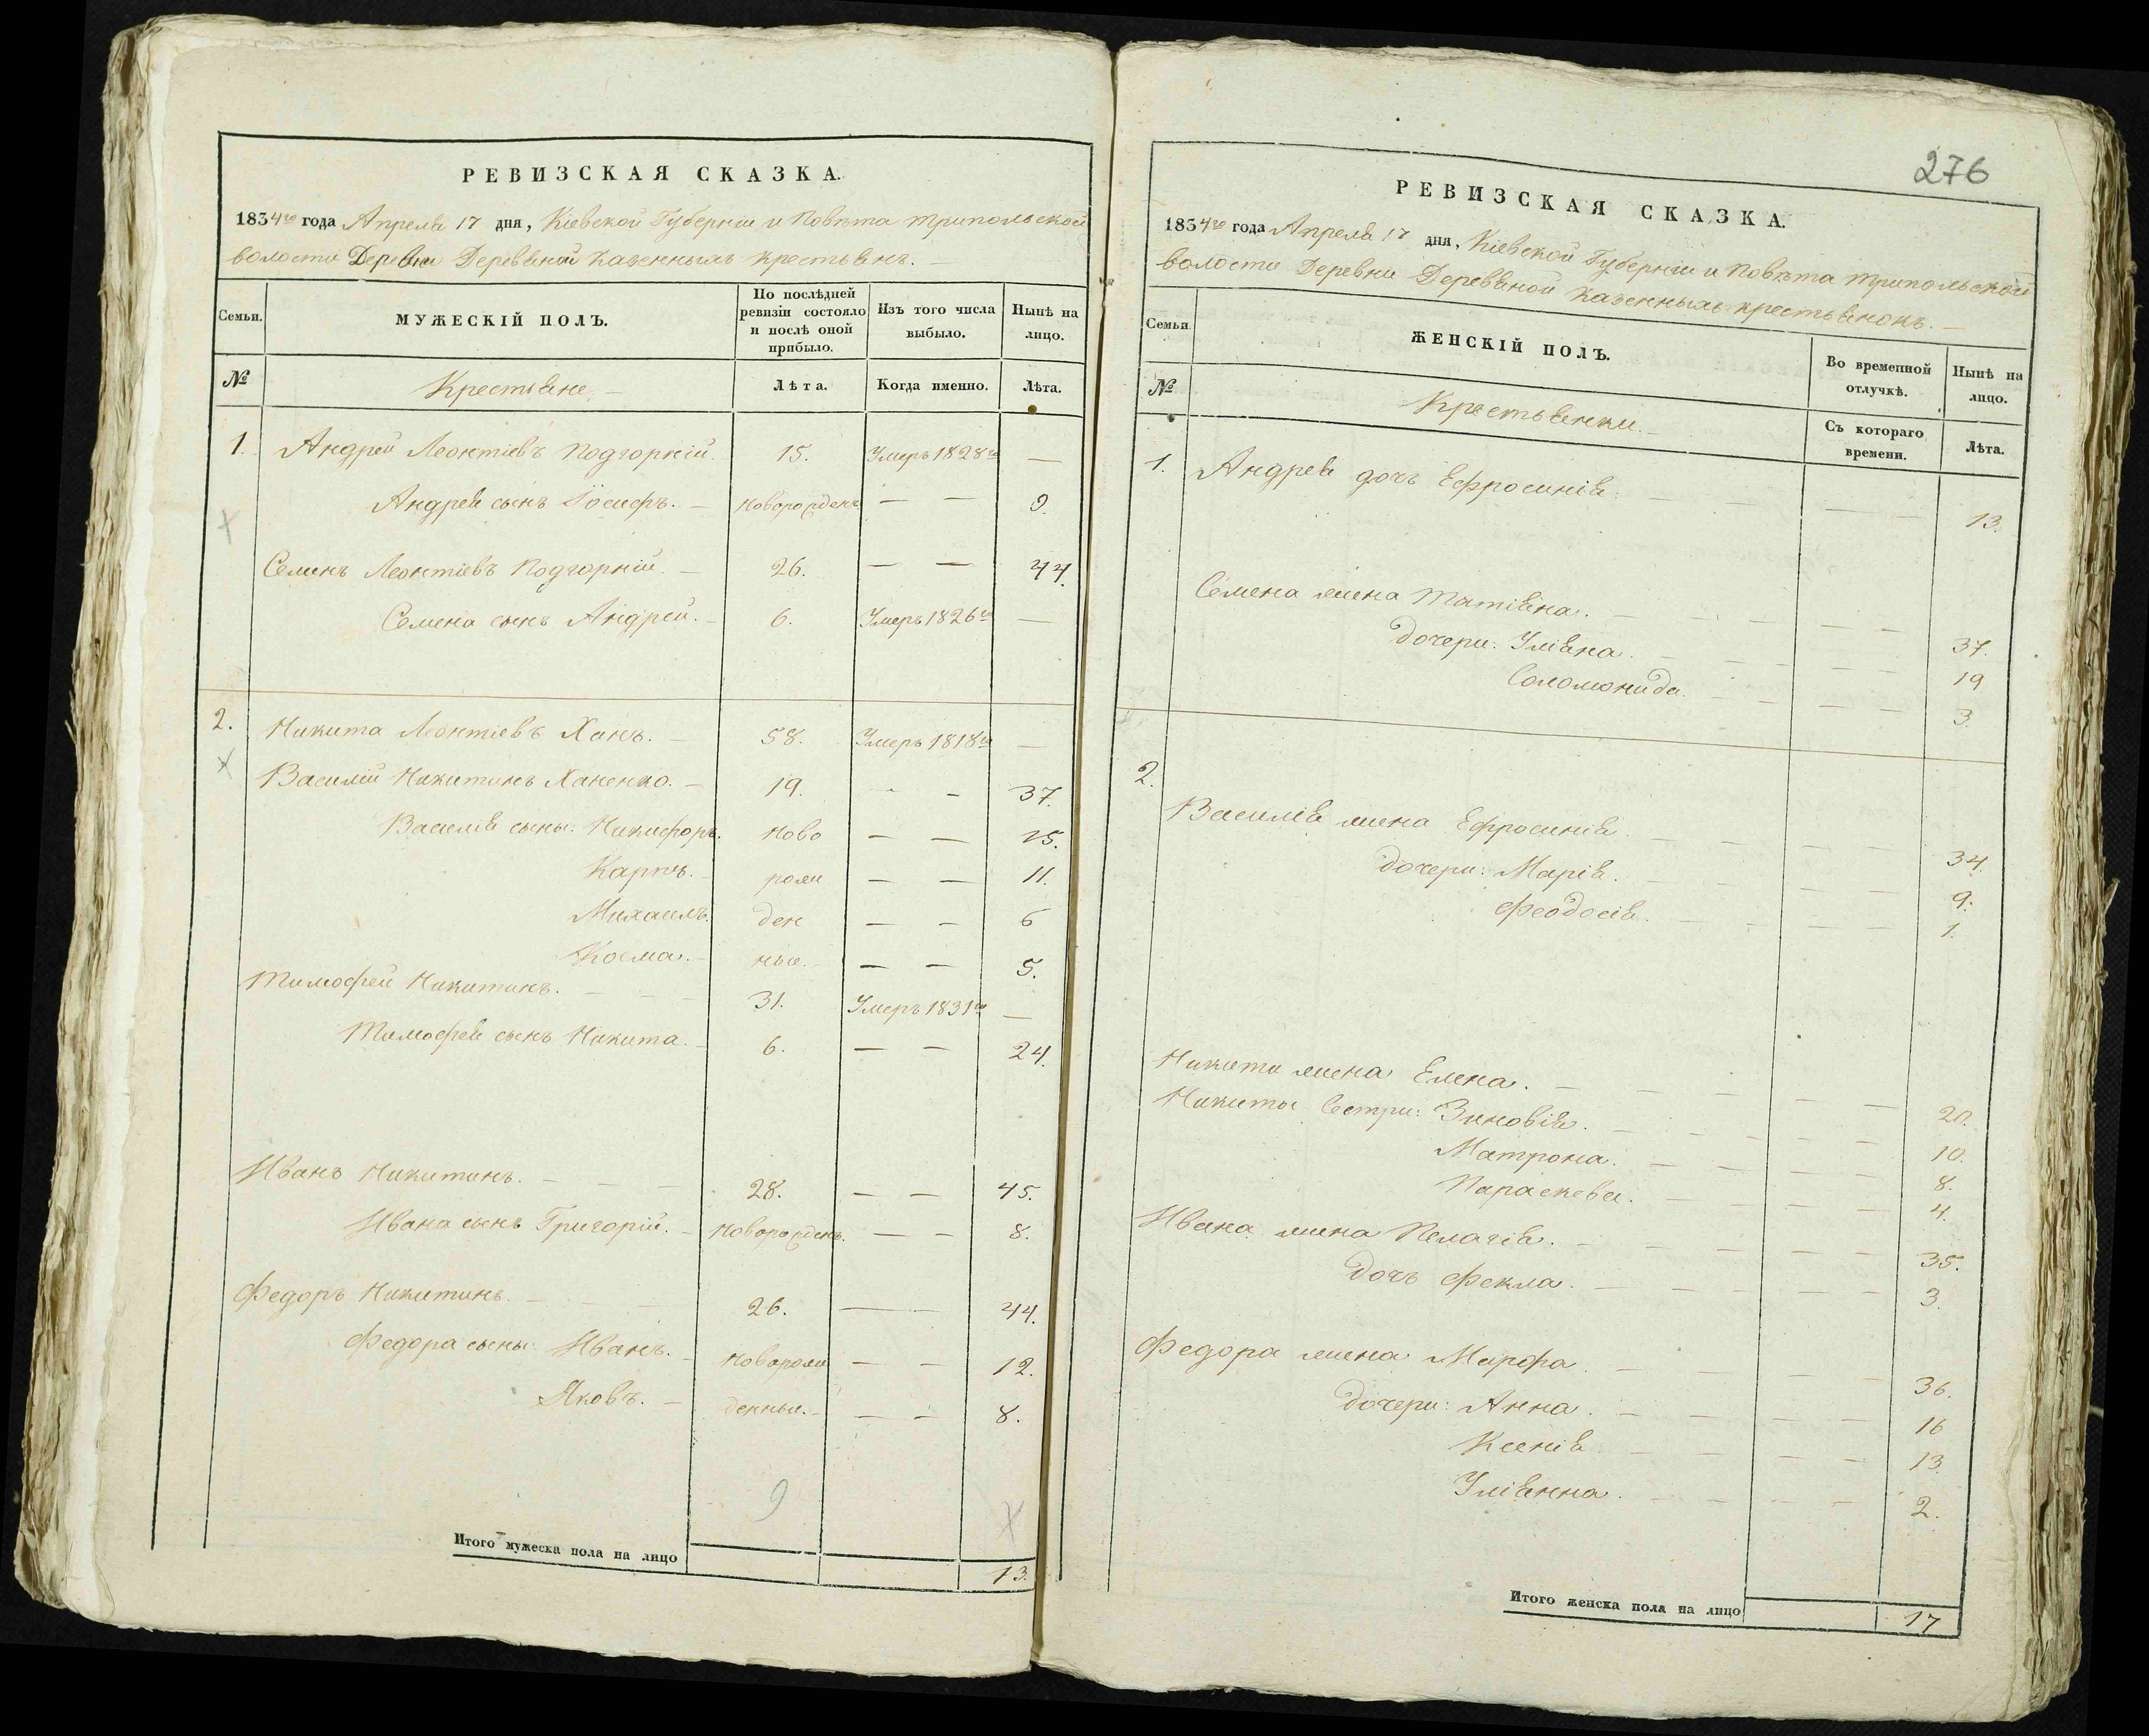 РЕВИЗСКАЯ СКАЗКА.
1834го года Апреля 17 дня, Кіевской Губерніи и Повѣта Трипольской
волости Деревни Деревяной Казенныхъ крестьянъ.
Семьи. МУЖЕСКІЙ ПОЛЪ. По послѣдней ревизіи состояло и послѣ оной прибыло. Изъ того числа выбыло. Нынѣ на лицо.
№ Крестьяне. Лѣта. Когда именно. Лѣта.
1. Андрей Леонтіевъ Подгорній. 15. Умеръ 1828го —
Андрея сынъ Іосифъ. — новорожденъ — — 9.
Семенъ Леонтіевъ Подгорній. — 26. — — 44.
Семена сынъ Андрей. — 6. Умеръ 1826го —
2. Никита Леонтіевъ Ханъ. — 58. Умеръ 1818го —
Василій Никитинъ Ханенко. — 19. — — 37.
Василія сыны: Никифоръ. ново — — 15.
Карпъ. — рож — — 11.
Михаилъ. ден — — 6
Косма. — ные. — — 5.
Тимофей Никитинъ. — — — 31. Умеръ 1831го —
Тимофея сынъ Никита. — 6. — — 24.
Иванъ Никитинъ. — — — 28. — — 45.
Ивана сынъ Григорій. — новорожденъ. — — 8.
Федоръ Никитинъ. — — — 26. — — 44.
Федора сыны: Иванъ. — новорож — — 12.
Яковъ. — денные. — — 8.
9
Итого мужеска пола на лицо 13.
276
РЕВИЗСКАЯ СКАЗКА.
1834го года Апреля 17 дня, Кіевской Губерніи и Повѣта Трипольской
волости Деревни Деревяной Казенныхъ крестьянокъ.
Семьи. ЖЕНСКІЙ ПОЛЪ. Во временной отлучкѣ. Нынѣ на лицо.
№ Крестьянки. Съ котораго времени. Лѣта.
1. Андрея дочь Ефросинія. 13.
Семена жена Татіяна. 37.
дочери: Уліяна. 19
Соломонида. 3.
2.
Василія жена Ефросинія. 34.
дочери: Марія. 9.
Феодосія. 1.
Никиты жена Елена. 20.
Никиты Сестри: Зиновія. 10.
Матрона. 8.
Параскева. 4.
Ивана жена Пелагія. 35.
дочь Фекла. 3.
Федора жена Марфа. 36.
дочери: Анна. 16
Ксенія 13.
Уліянна. 2.
Итого женска пола на лицо 17